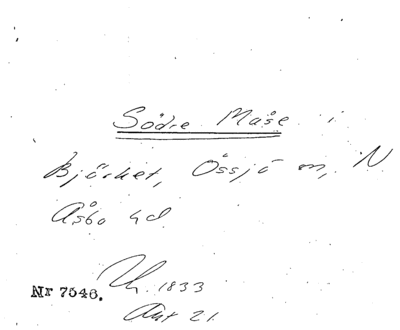 Södre Måse i
Björket, Össjö sn, N
Åsbo hd.
Nr 7546. Uh. 1833
Akt 21.